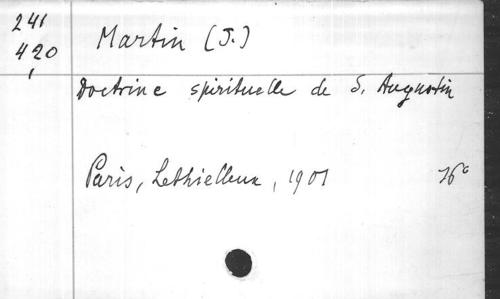 241
420
Martin (J.)
Doctrine spirituelle de S. Augustin
Paris, Lethielleux, 1901